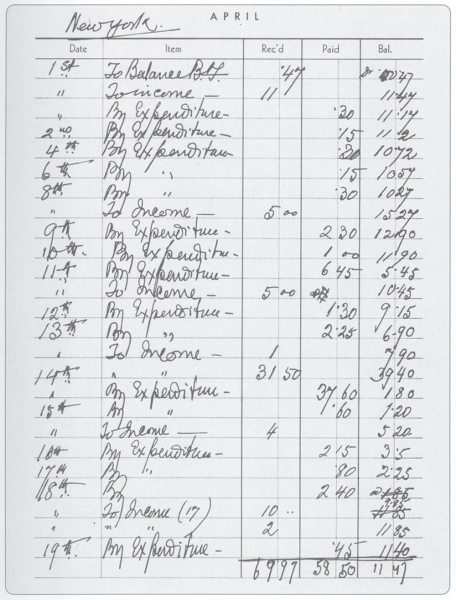 APRIL
New York.
Date Item Rec'd Paid Bal.
1st To Balance B.F. .47 00 47
" To income — 11 11.47
" By Expenditure — .30 11.17
2nd By Expenditure — .15 11.2
4th By Expenditure .30 10 72
6th By " .15 10 57
8th By " .30 10 27
" To Income — 5 00 15 27
9th By Expenditure — 2 30 12.90
10th. By Expenditure — 1 00 11 90
11th By Expenditure — 6 45 5.45
" To Income — 5 00 10.45
12th By Expenditure — 1.30 9.15
13th By " 2.25 6.90
" To Income — 1 7.90
14th " 31 50 39 40
By Expenditure — 37 60 1.80
15th By " .60 1.20
" To Income — 4 5.20
16th By Expenditure — 2 15 3.5
17th By " .80 2.25
18th By 2 40
" To Income (17) 10 ..
" " " 2 11 85
19th. By Expenditure — .45 11 40
69 97 58 50 11 47